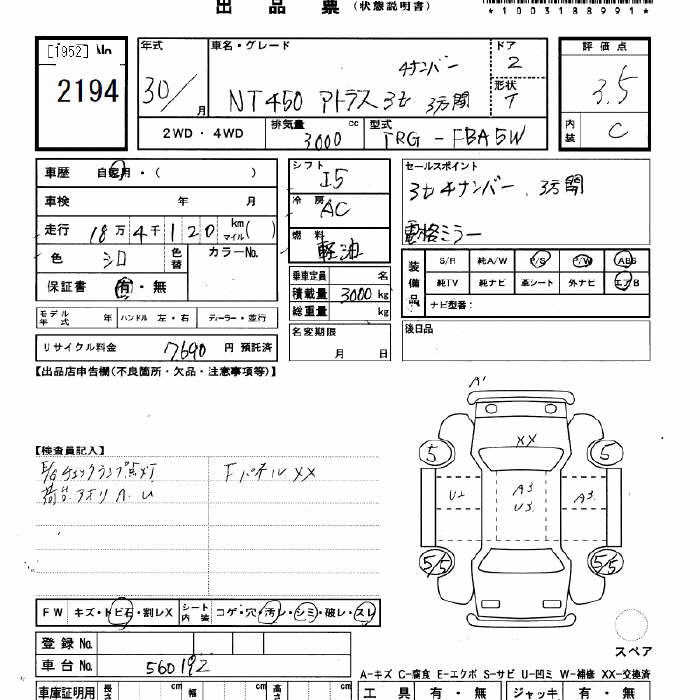 出 品 票 (状態説明書)
*1003188991*
[1952] No
2194
年式 30/ 月
車名・グレード 4ナンバー
NT450 アトラス 3t 3方開
ドア 2
形状 T
評価点 3.5
内装 C
2WD・4WD
排気量 3000 cc
型式 TRG-FBA5W
車歴 自家用・( )
車検 年 月
走行 18万4千120 km マイル( )
色 シロ 色替 カラーNo.
保証書 有・無
シフト I5
冷房 AC
燃料 軽油
乗車定員 名
積載量 3000 kg
総重量 kg
名変期限 月 日
セールスポイント
3t 4ナンバー 、3方開
電格ミラー
装備品 S/R 純A/W P/S P/W ABS
純TV 純ナビ 革シート 外ナビ エアB
ナビ型番:
後日品
モデル年式 年 ハンドル 左・右 ディーラー・並行
リサイクル料金 7,690 円 預託済
【出品店申告欄(不良箇所・欠品・注意事項等)】
【検査員記入】
E/G チェックランプ点灯
荷台アオリ A. U
Fパネル XX
A'
XX
5 5
U2 A3 U3 A3
5/5 5/5
スペア
FW キズ・トビ石・割レX シート内装 コゲ・穴・汚レ・シミ・破レ・スレ
登録 No.
車台 No. 560192
A-キズ C-腐食 E-エクボ S-サビ U-凹ミ W-補修 XX-交換済
車庫証明用 長さ cm 幅 cm 高さ cm
工具 有・無 ジャッキ 有・無